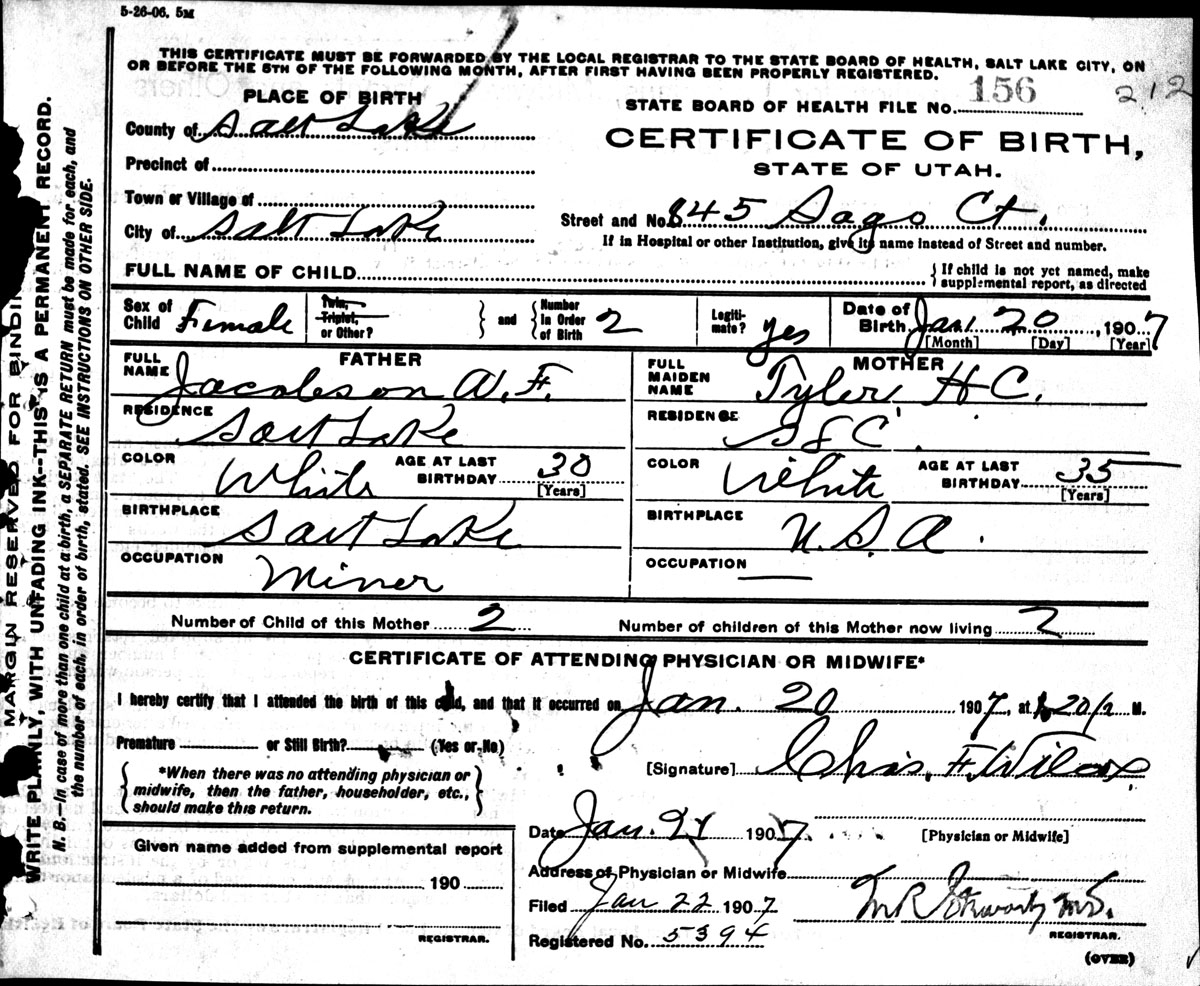 5-26-06. 5M
THIS CERTIFICATE MUST BE FORWARDED BY THE LOCAL REGISTRAR TO THE STATE BOARD OF HEALTH, SALT LAKE CITY, ON
OR BEFORE THE 5TH OF THE FOLLOWING MONTH, AFTER FIRST HAVING BEEN PROPERLY REGISTERED.
PLACE OF BIRTH
STATE BOARD OF HEALTH FILE NO. 156 212
County of Salt Lake
CERTIFICATE OF BIRTH,
STATE OF UTAH.
Precinct of
Town or Village of
City of Salt Lake
Street and No. 845 Sago Ct.
If in Hospital or other Institution, give its name instead of Street and number.
FULL NAME OF CHILD
If child is not yet named, make
supplemental report, as directed
Sex of Child Female
Twin, Triplet, or Other? and Number in Order of Birth 2
Legitimate? yes
Date of Birth Jan. 20, 1907
[Month] [Day] [Year]
FATHER
FULL NAME Jacobson W. F.
RESIDENCE Salt Lake
COLOR White AGE AT LAST BIRTHDAY 30
[Years]
BIRTHPLACE Salt Lake
OCCUPATION Miner
MOTHER
FULL MAIDEN NAME Tyler H C.
RESIDENCE S L C.
COLOR White AGE AT LAST BIRTHDAY 35
[Years]
BIRTHPLACE U. S. A.
OCCUPATION
Number of Child of this Mother 2 Number of children of this Mother now living 2
CERTIFICATE OF ATTENDING PHYSICIAN OR MIDWIFE*
I hereby certify that I attended the birth of this child, and that it occurred on Jan. 20 1907, at M.
Premature or Still Birth? (Yes or No)
*When there was no attending physician or
midwife, then the father, householder, etc.,
should make this return.
[Signature] Chas. F. Wilcox
[Physician or Midwife]
Date Jan. 21 1907
Given name added from supplemental report
190
REGISTRAR.
Address of Physician or Midwife
Filed Jan 22 1907
M.D.
REGISTRAR.
Registered No. 5394
(OVER)
MARGIN RESERVED FOR BINDING
WRITE PLAINLY, WITH UNFADING INK--THIS IS A PERMANENT RECORD.
N. B.—In case of more than one child at a birth, a SEPARATE RETURN must be made for each, and
the number of each, in order of birth, stated. SEE INSTRUCTIONS ON OTHER SIDE.